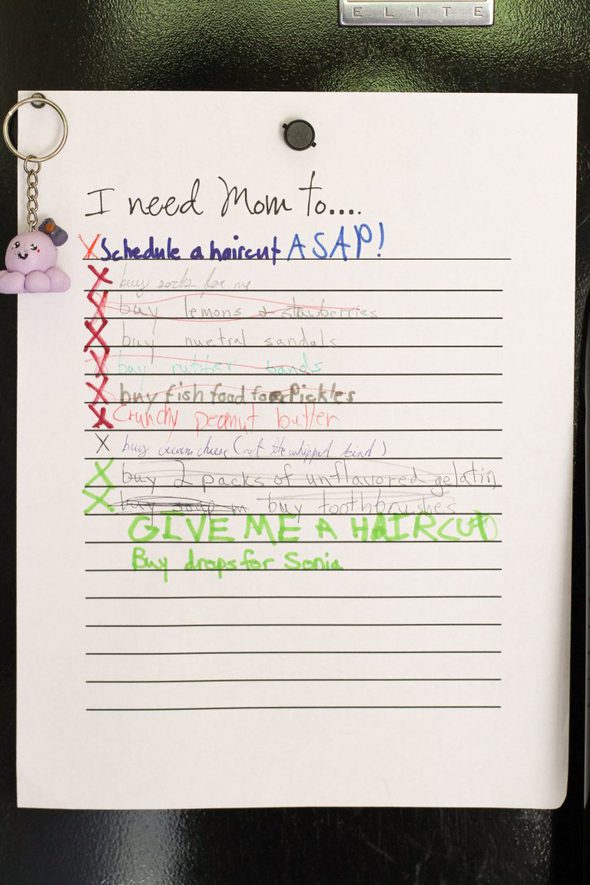 ELITE
I need Mom to....
X Schedule a haircut ASAP!
X buy socks for me
X buy lemons & stawberries
X buy nuetral sandals
X buy rubber bands
X buy fish food for Pickles
X Crunchy peanut butter
X buy cream cheese (not the whipped kind)
X buy 2 packs of unflavored gelatin
X buy soap buy toothbrushes
GIVE ME A HAIRCUT
Buy drops for Sonia